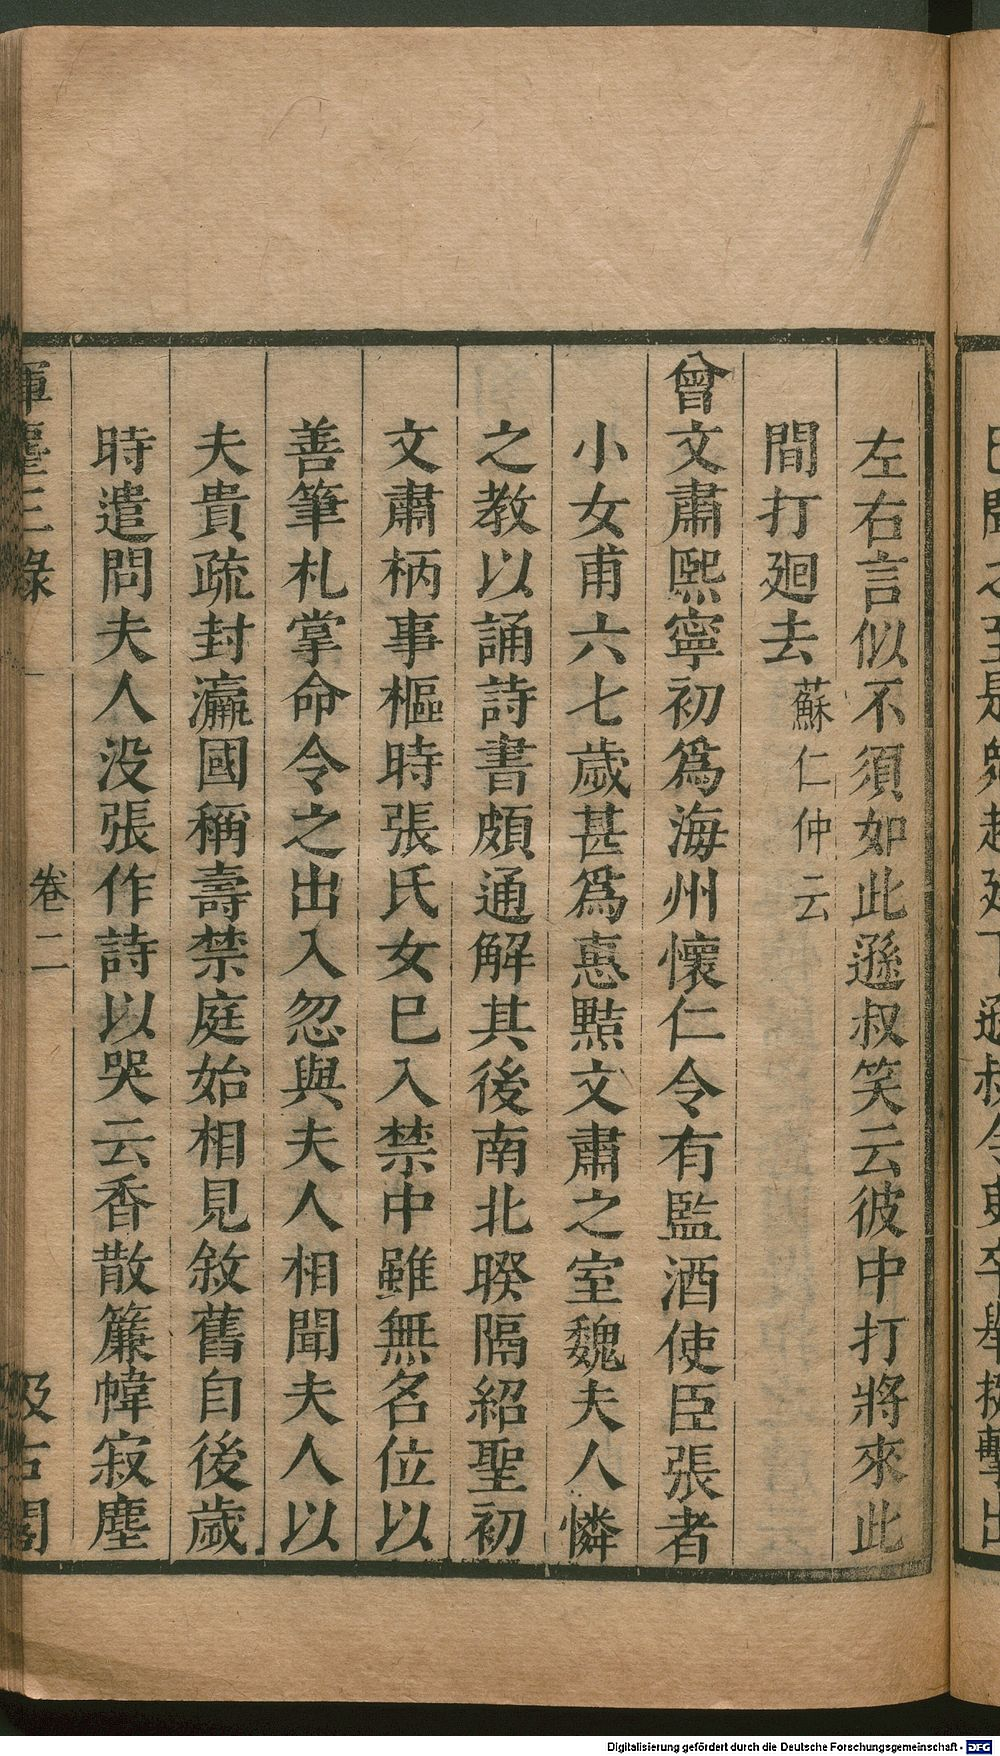 左右言似不須如此遜叔笑云彼中打將來此
間打廻去蘇仁仲云
曾文肅熙寧初爲海州懷仁令有監酒使臣張者
小女甫六七歲甚爲惠黠文肅之室魏夫人憐
之教以誦詩書頗通解其後南北暌隔紹聖初
文肅柄事樞時張氏女巳入禁中雖無名位以
善筆札掌命令之出入忽與夫人相聞夫人以
夫貴疏封瀛國稱壽禁庭始相見敘舊自後歲
時遣問夫人没張作詩以哭云香散簾幃寂塵
揮塵三錄
卷二
汲古閣
Digitalisierung gefördert durch die Deutsche Forschungsgemeinschaft - DFG